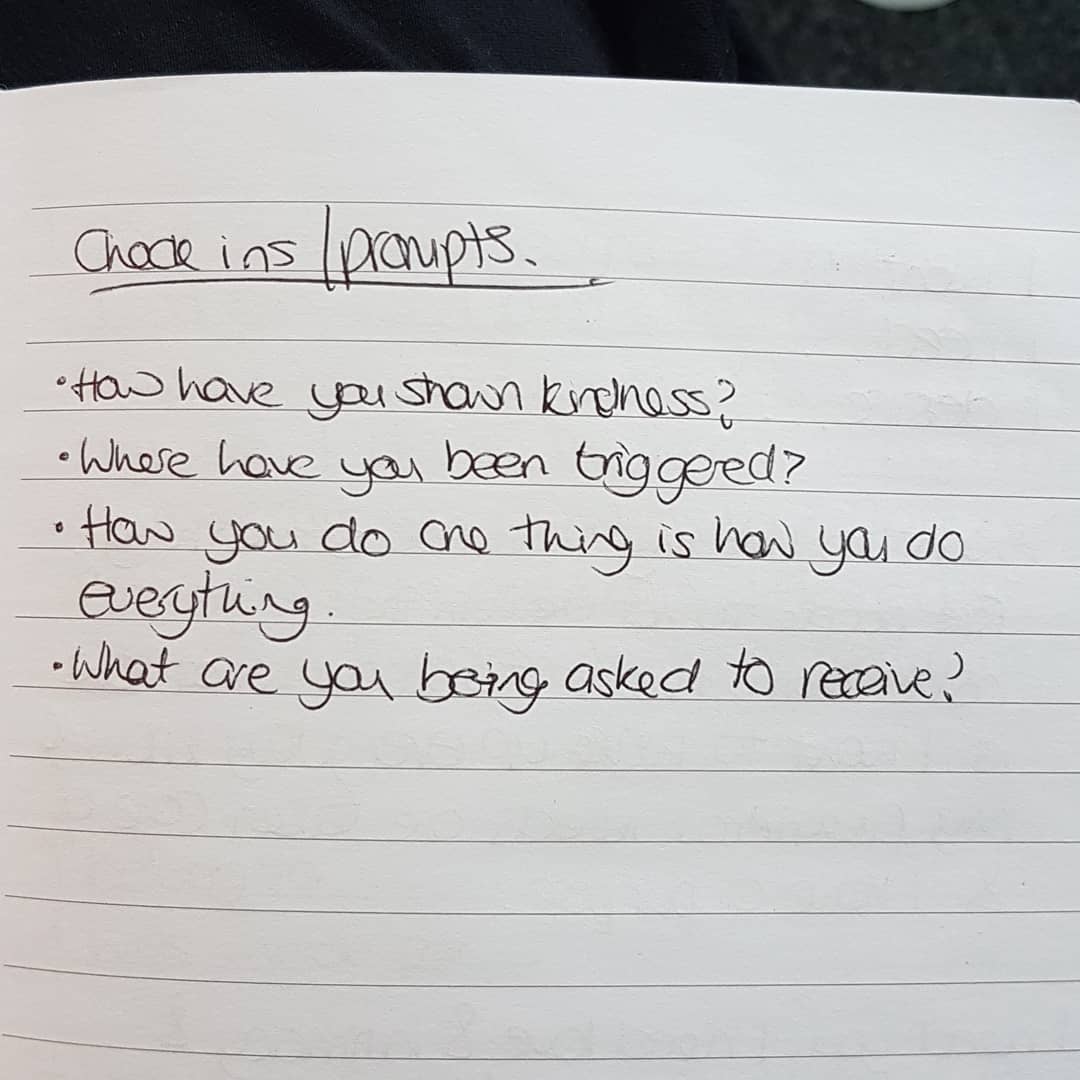 Check ins / prompts.
• How have you shown kindness?
• Where have you been triggered?
• How you do one thing is how you do
everything.
• What are you being asked to receive?